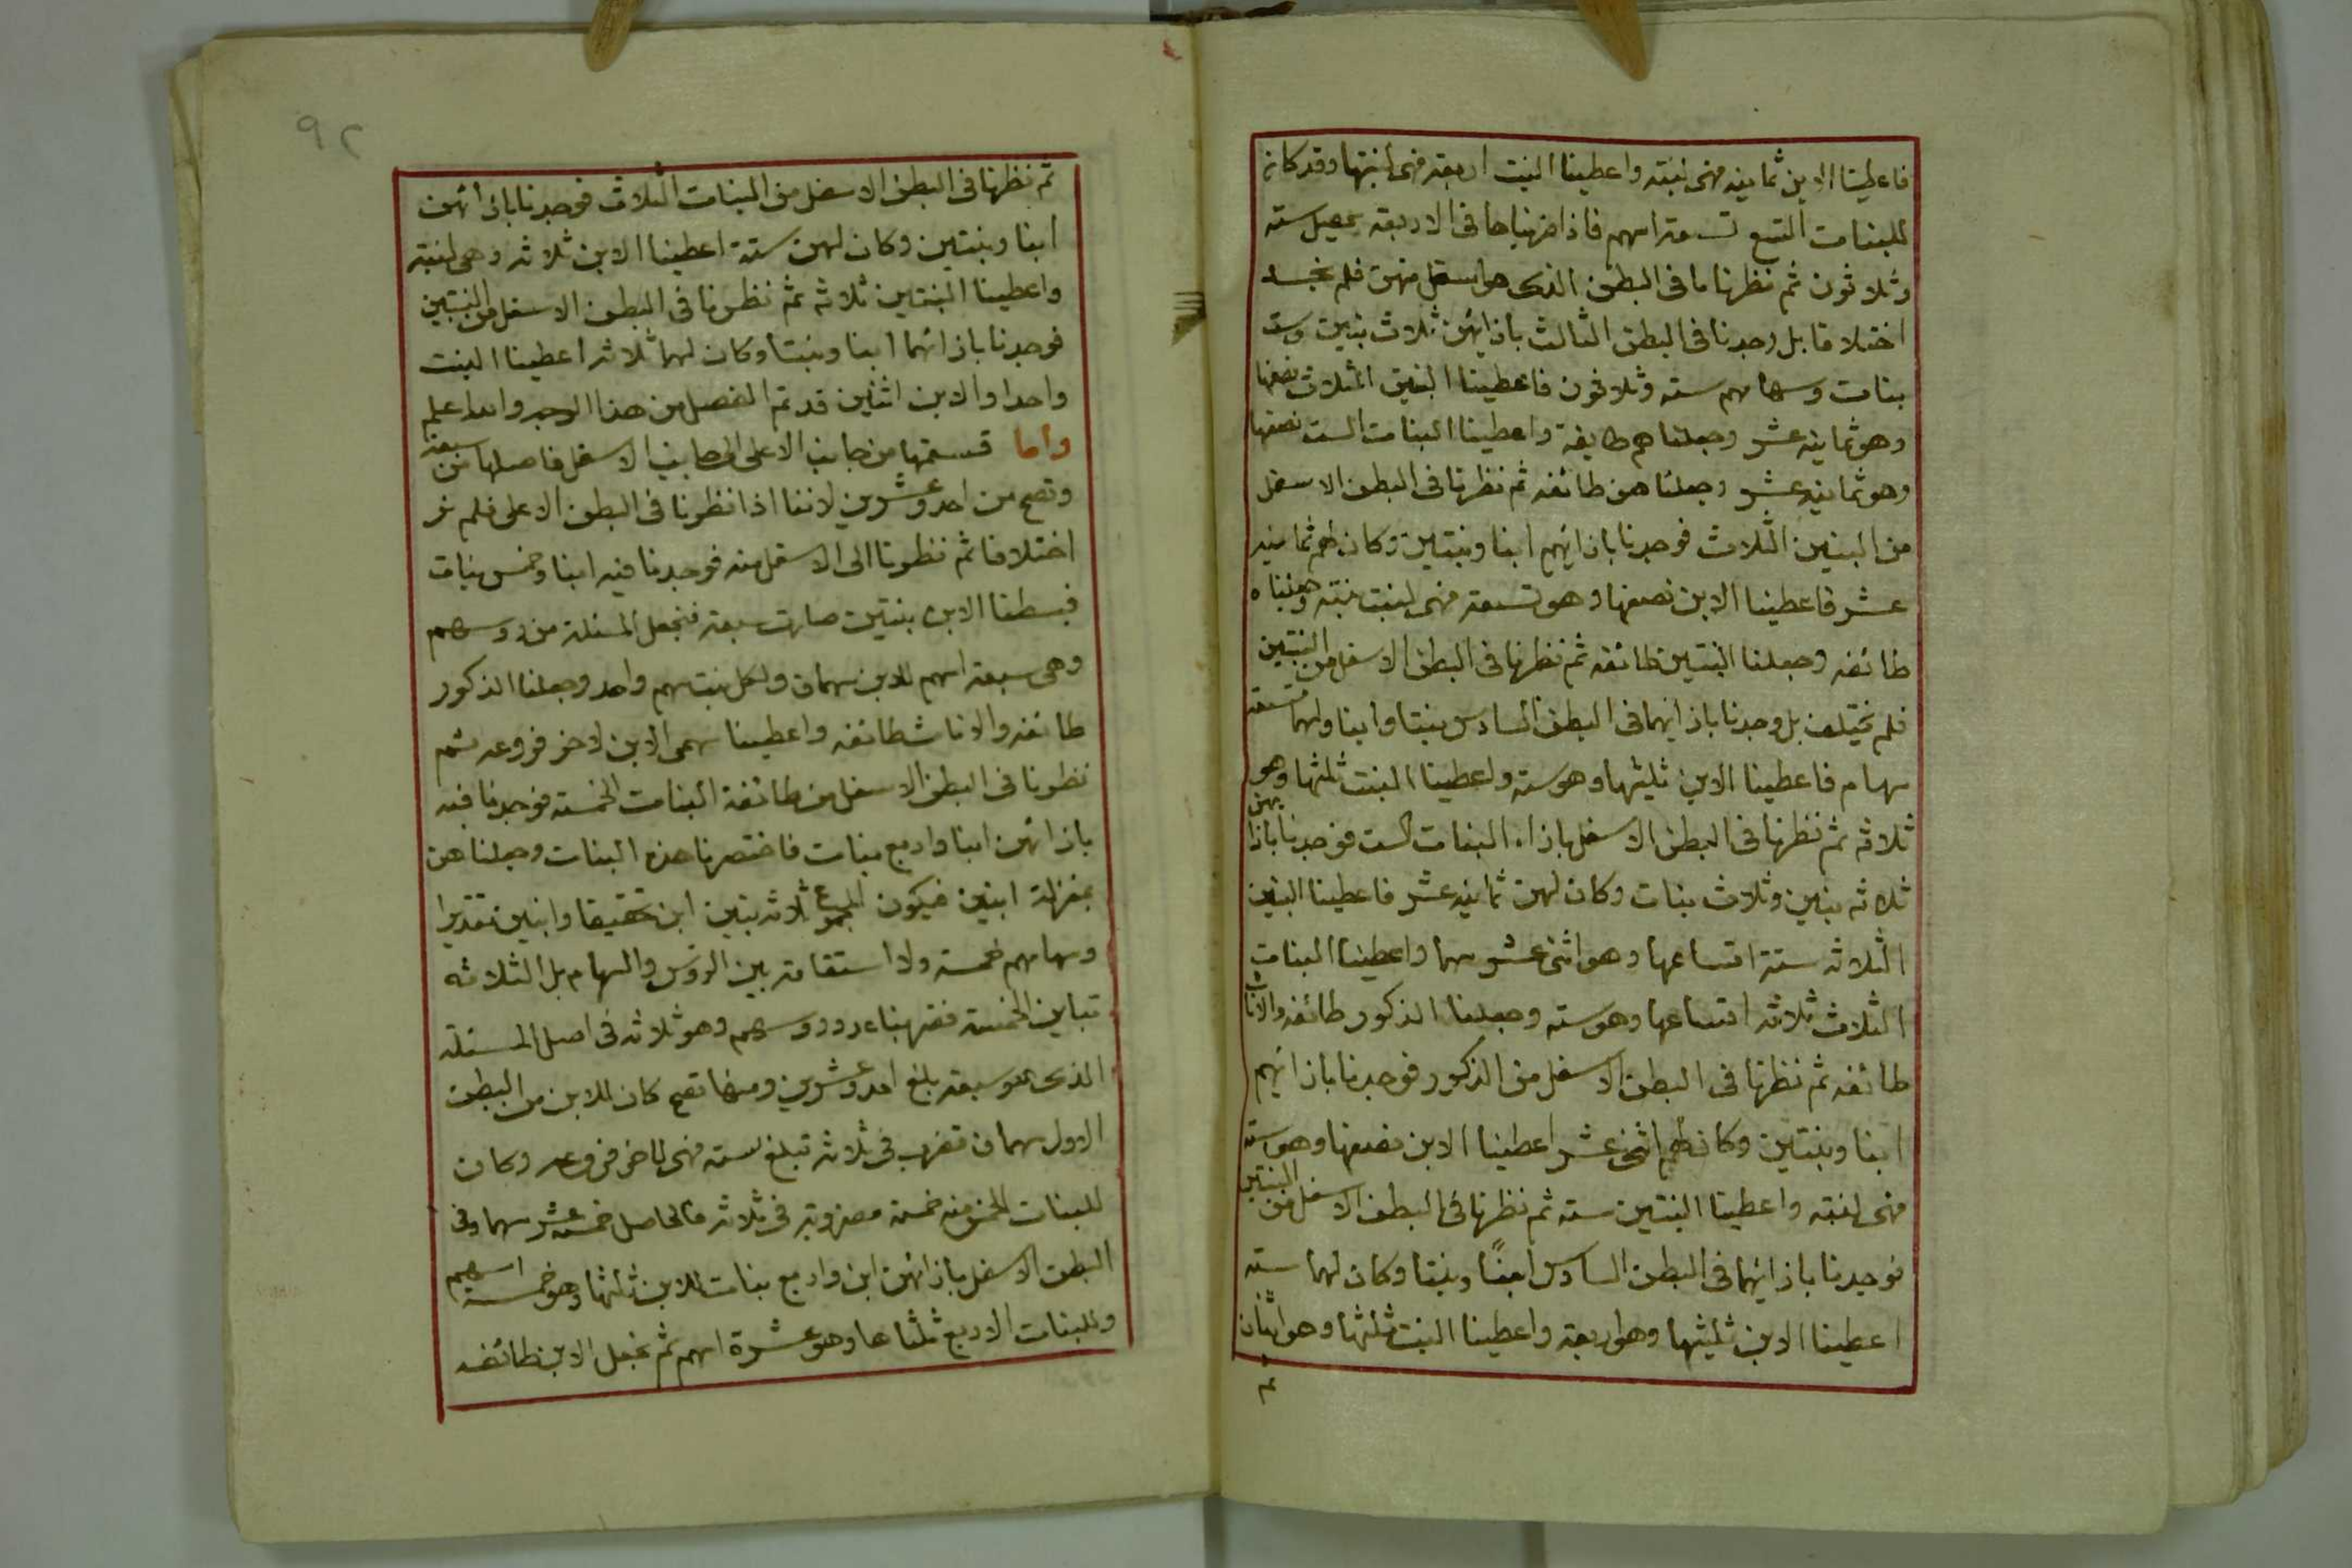 فاعطينا الابن ثمانيه فهى لبنته واعطينا البنت اربعة فهى لبنتها وقد كان
للبنات التسع تسعة اسهم فاذا ضربناها فى الاربعة يحصل ستة
وثلاثون ثم نظرنا ما فى البطن الذى هو اسفل منهن فلم نجد
اختلافا بل وجدنا فى البطن الثالث بازائهن ثلاث بنين وست
بنات وسهامهم ستة وثلاثون فاعطينا البنين الثلاث نصفها
وهو ثمانيه عشر وجعلناهم طايفة واعطينا البنات الست نصفها
وهو ثمانيه عشر وجعلناهن طائفه ثم نظرنا فى البطن الاسفل
من البنين الثلاث فوجدنا بازائهم ابنا وبنتين وكان لهم ثمانيه
عشر فاعطينا الابن نصفها وهو تسعة فهى لبنت بنته وجعلناه
طائفه وجعلنا البنتين طائفه ثم نظرنا فى البطن الاسفل من البنتين
فلم يختلف بل وجدنا بازائهما فى البطن السادس بنتا وابنا ولهما تسعة
سهام فاعطينا الابن ثلثيها وهو ستة واعطينا البنت ثلثها وهو
ثلاثه ثم نظرنا فى البطن الاسفل بازاء البنات الست فوجدنا بازائهن
ثلاثه بنين وثلاث بنات وكان لهن ثمانيه عشر فاعطينا البنين
الثلاثه ستة اتساعها وهو اثنى عشر سهما واعطينا البنات
الثلاث ثلاثه اتساعها وهو سته وجعلنا الذكور طائفه والاناث
طائفه ثم نظرنا فى البطن الاسفل من الذكور فوجدنا بازائهم
ابنا وبنتين وكان لهم اثنى عشر اعطينا الابن نصفها وهو سته
فهى لبنته واعطينا البنتين سته ثم نظرنا فى البطن الاسفل من البنتين
فوجدنا بازائهما فى البطن السادس ابنًا وبنتا وكان لهما سته
اعطينا الابن ثلثيها وهو اربعة واعطينا البنت ثلثها وهو اثنان
ثم
٩٢
ثم نظرنا فى البطن الاسفل من البنات الثلاث فوجدنا بازائهن
ابنا وبنتين وكان لهن ستة اعطينا الابن ثلاثه وهى لبنته
واعطينا البنتين ثلاثه ثم نظرنا فى البطن الاسفل من البنتين
فوجدنا بازائهما ابنا وبنتا وكان لهما ثلاثه اعطينا البنت
واحدا والابن اثنين قد تم الفصل من هذا الوجه والله اعلم
واما قسمتها من جانب الاعلى الى جانب الاسفل فاصلها من سبعة
وتصح من احد وعشرين لاننا اذا نظرنا فى البطن الاعلى فلم نر
اختلافا ثم نظرنا الى الاسفل منه فوجدنا فيه ابنا وخمس بنات
فبسطنا الابن بنتين صارت سبعة فنجعل المسئلة من رؤسهم
وهى سبعة اسهم للابن سهمان ولكل بنت سهم واحد وجعلنا الذكور
طائفه والاناث طائفه واعطينا سهمى الابن لاخر فروعه ثم
نظرنا فى البطن الاسفل من طائفة البنات الخمسة فوجدنا فيه
بازائهن ابنا واربع بنات فاختصرنا هذه البنات وجعلناهن
بمنزلة ابنين فيكون المجموع ثلاثه بنين ابن تحقيقا وابنين تقديرا
وسهامهم خمسة ولا استقامة بين الرؤس والسهام بل الثلاثه
تباين الخمسة فضربنا عدد رؤسهم وهو ثلاثه فى اصل المسئلة
الذى هو سبعة بلغ احد وعشرين ومنها تصح كان للابن من البطن
الاول سهمان تضرب فى ثلاثه تبلغ ستة فهى لاخر فروعه وكان
للبنات الخمس منه خمسة مضروبة فى ثلاثه فالحاصل خمسة عشر سهما وفى
البطن الاسفل بازائهن ابن واربع بنات للابن ثلثها وهو خمسة اسهم
وللبنات الاربع ثلثاها وهو عشرة اسهم ثم نجعل الابن طائفه